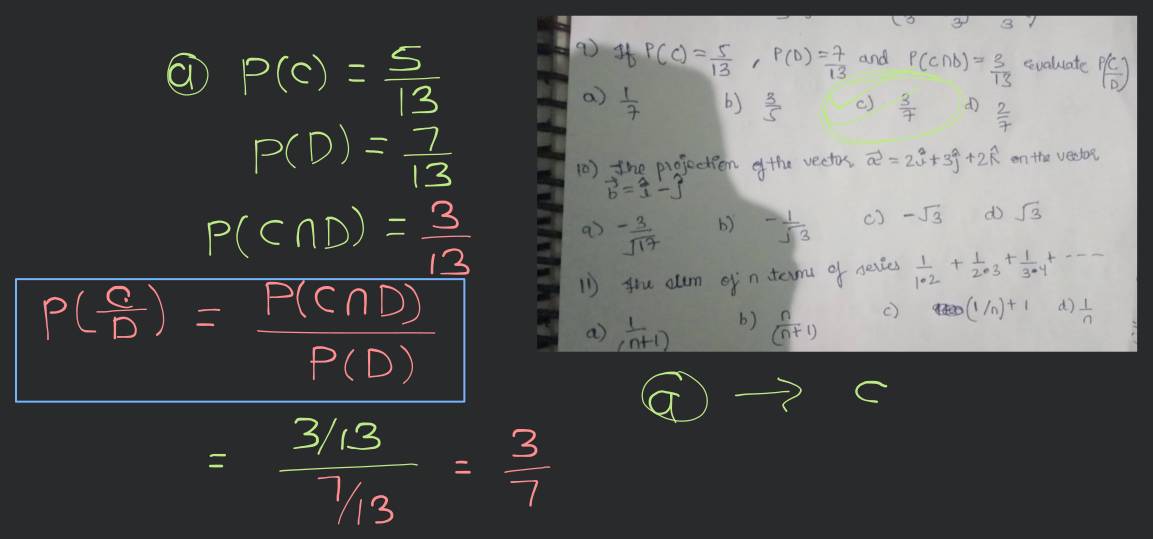 ⓐ P(C) = 5/13
P(D) = 7/13
P(C∩D) = 3/13
P(C/D) = P(C∩D)/P(D)
= 3/13 / 7/13 = 3/7
9) If P(C) = 5/13 , P(D) = 7/13 and P(C∩D) = 3/13 evaluate P(C/D)
a) 1/7 b) 3/5 c) 3/7 d) 2/7
10) The projection of the vector a⃗ = 2î + 3ĵ + 2k̂ on the vector
b⃗ = î - ĵ
a) -3/√17 b) -1/√3 c) -√3 d) √3
11) The sum of n terms of series 1/1.2 + 1/2.3 + 1/3.4 + ----
a) 1/(n+1) b) n/(n+1) c) (1/n)+1 d) 1/n
ⓐ → c